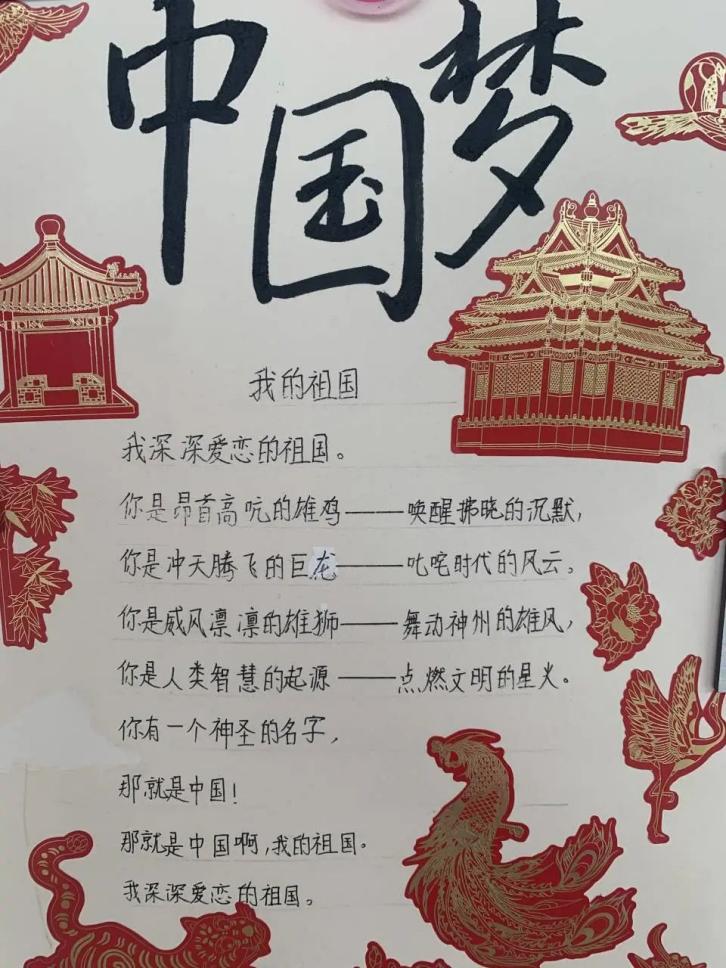 中国梦
我的祖国
我深深爱恋的祖国。
你是昂首高吭的雄鸡——唤醒拂晓的沉默,
你是冲天腾飞的巨龙——叱咤时代的风云,
你是威风凛凛的雄狮——舞动神州的雄风,
你是人类智慧的起源——点燃文明的星火。
你有一个神圣的名字,
那就是中国!
那就是中国啊,我的祖国。
我深深爱恋的祖国。